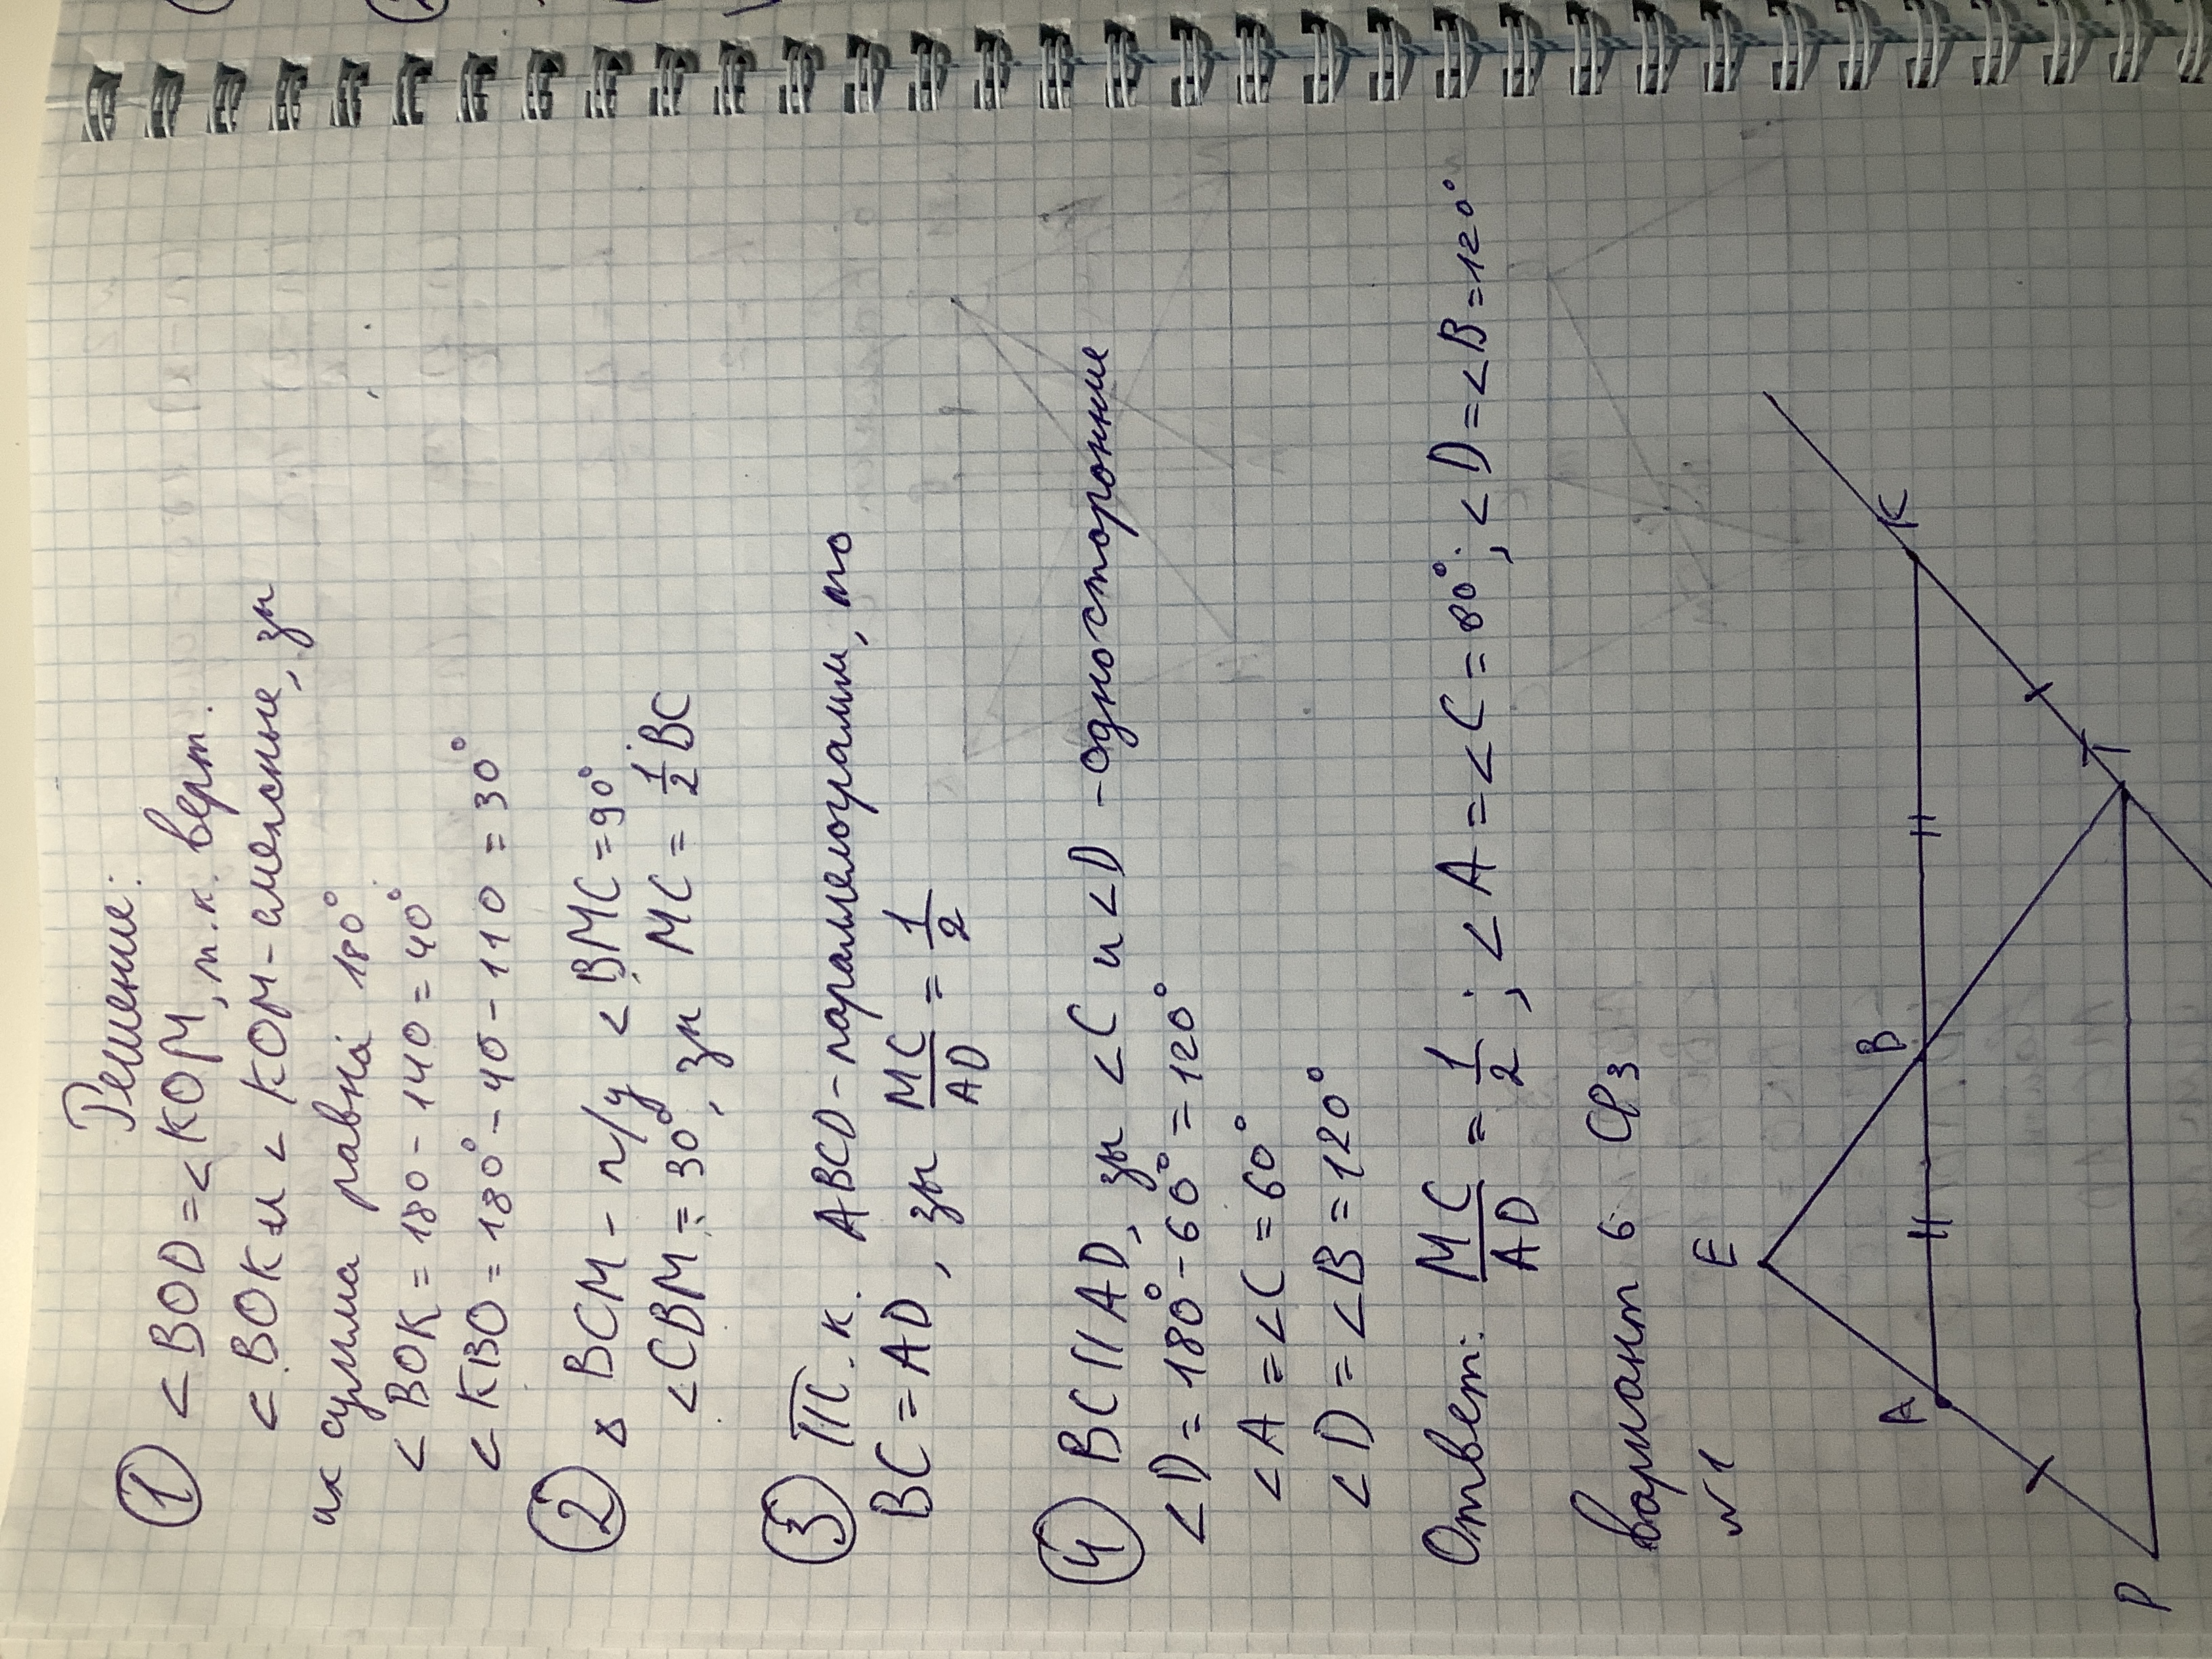 Решение:
① ∠BOD = ∠KOM, т.к. верт.
∠BOK и ∠KOM - смежные, зн
их сумма равна 180°
∠BOK = 180 - 140 = 40°
∠KBO = 180° - 40 - 110 = 30°
② △ BCM - п/у ∠BMC = 90°
∠CBM = 30°, зн MC = 1/2 BC
③ Т.к. ABCD - параллелограмм, то
BC = AD, зн MC/AD = 1/2
④ BC || AD, зн ∠C и ∠D - односторонние
∠D = 180° - 60° = 120°
∠A = ∠C = 60°
∠D = ∠B = 120°
Ответ: MC/AD = 1/2; ∠A = ∠C = 60°; ∠D = ∠B = 120°
вариант 6 СР3
№1
E
A B K
P T